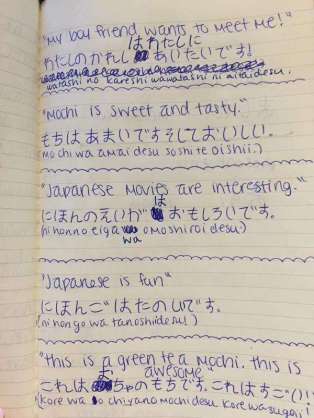 "My boy friend wants to meet me!"
はわたしに
わたしのかれし あいたいです!
watashi no kareshi wa watashi ni aitai desu.
"Mochi is sweet and tasty."
もちはあまいですそしておいしい。
(mochi wa amai desu soshite oishii.)
"Japanese movies are interesting."
は
にほんのえいが おもしろいです。
(nihon no eiga omoshiroi desu.)
wa
"Japanese is fun"
にほんご はたのしいです。
(nihongo wa tanoshi desu!)
"this is a green tea mochi. this is
awesome"
これは ちゃのもちです。これはすごい!!
(kore wa chiya no mochi desu. kore wa sugoi!